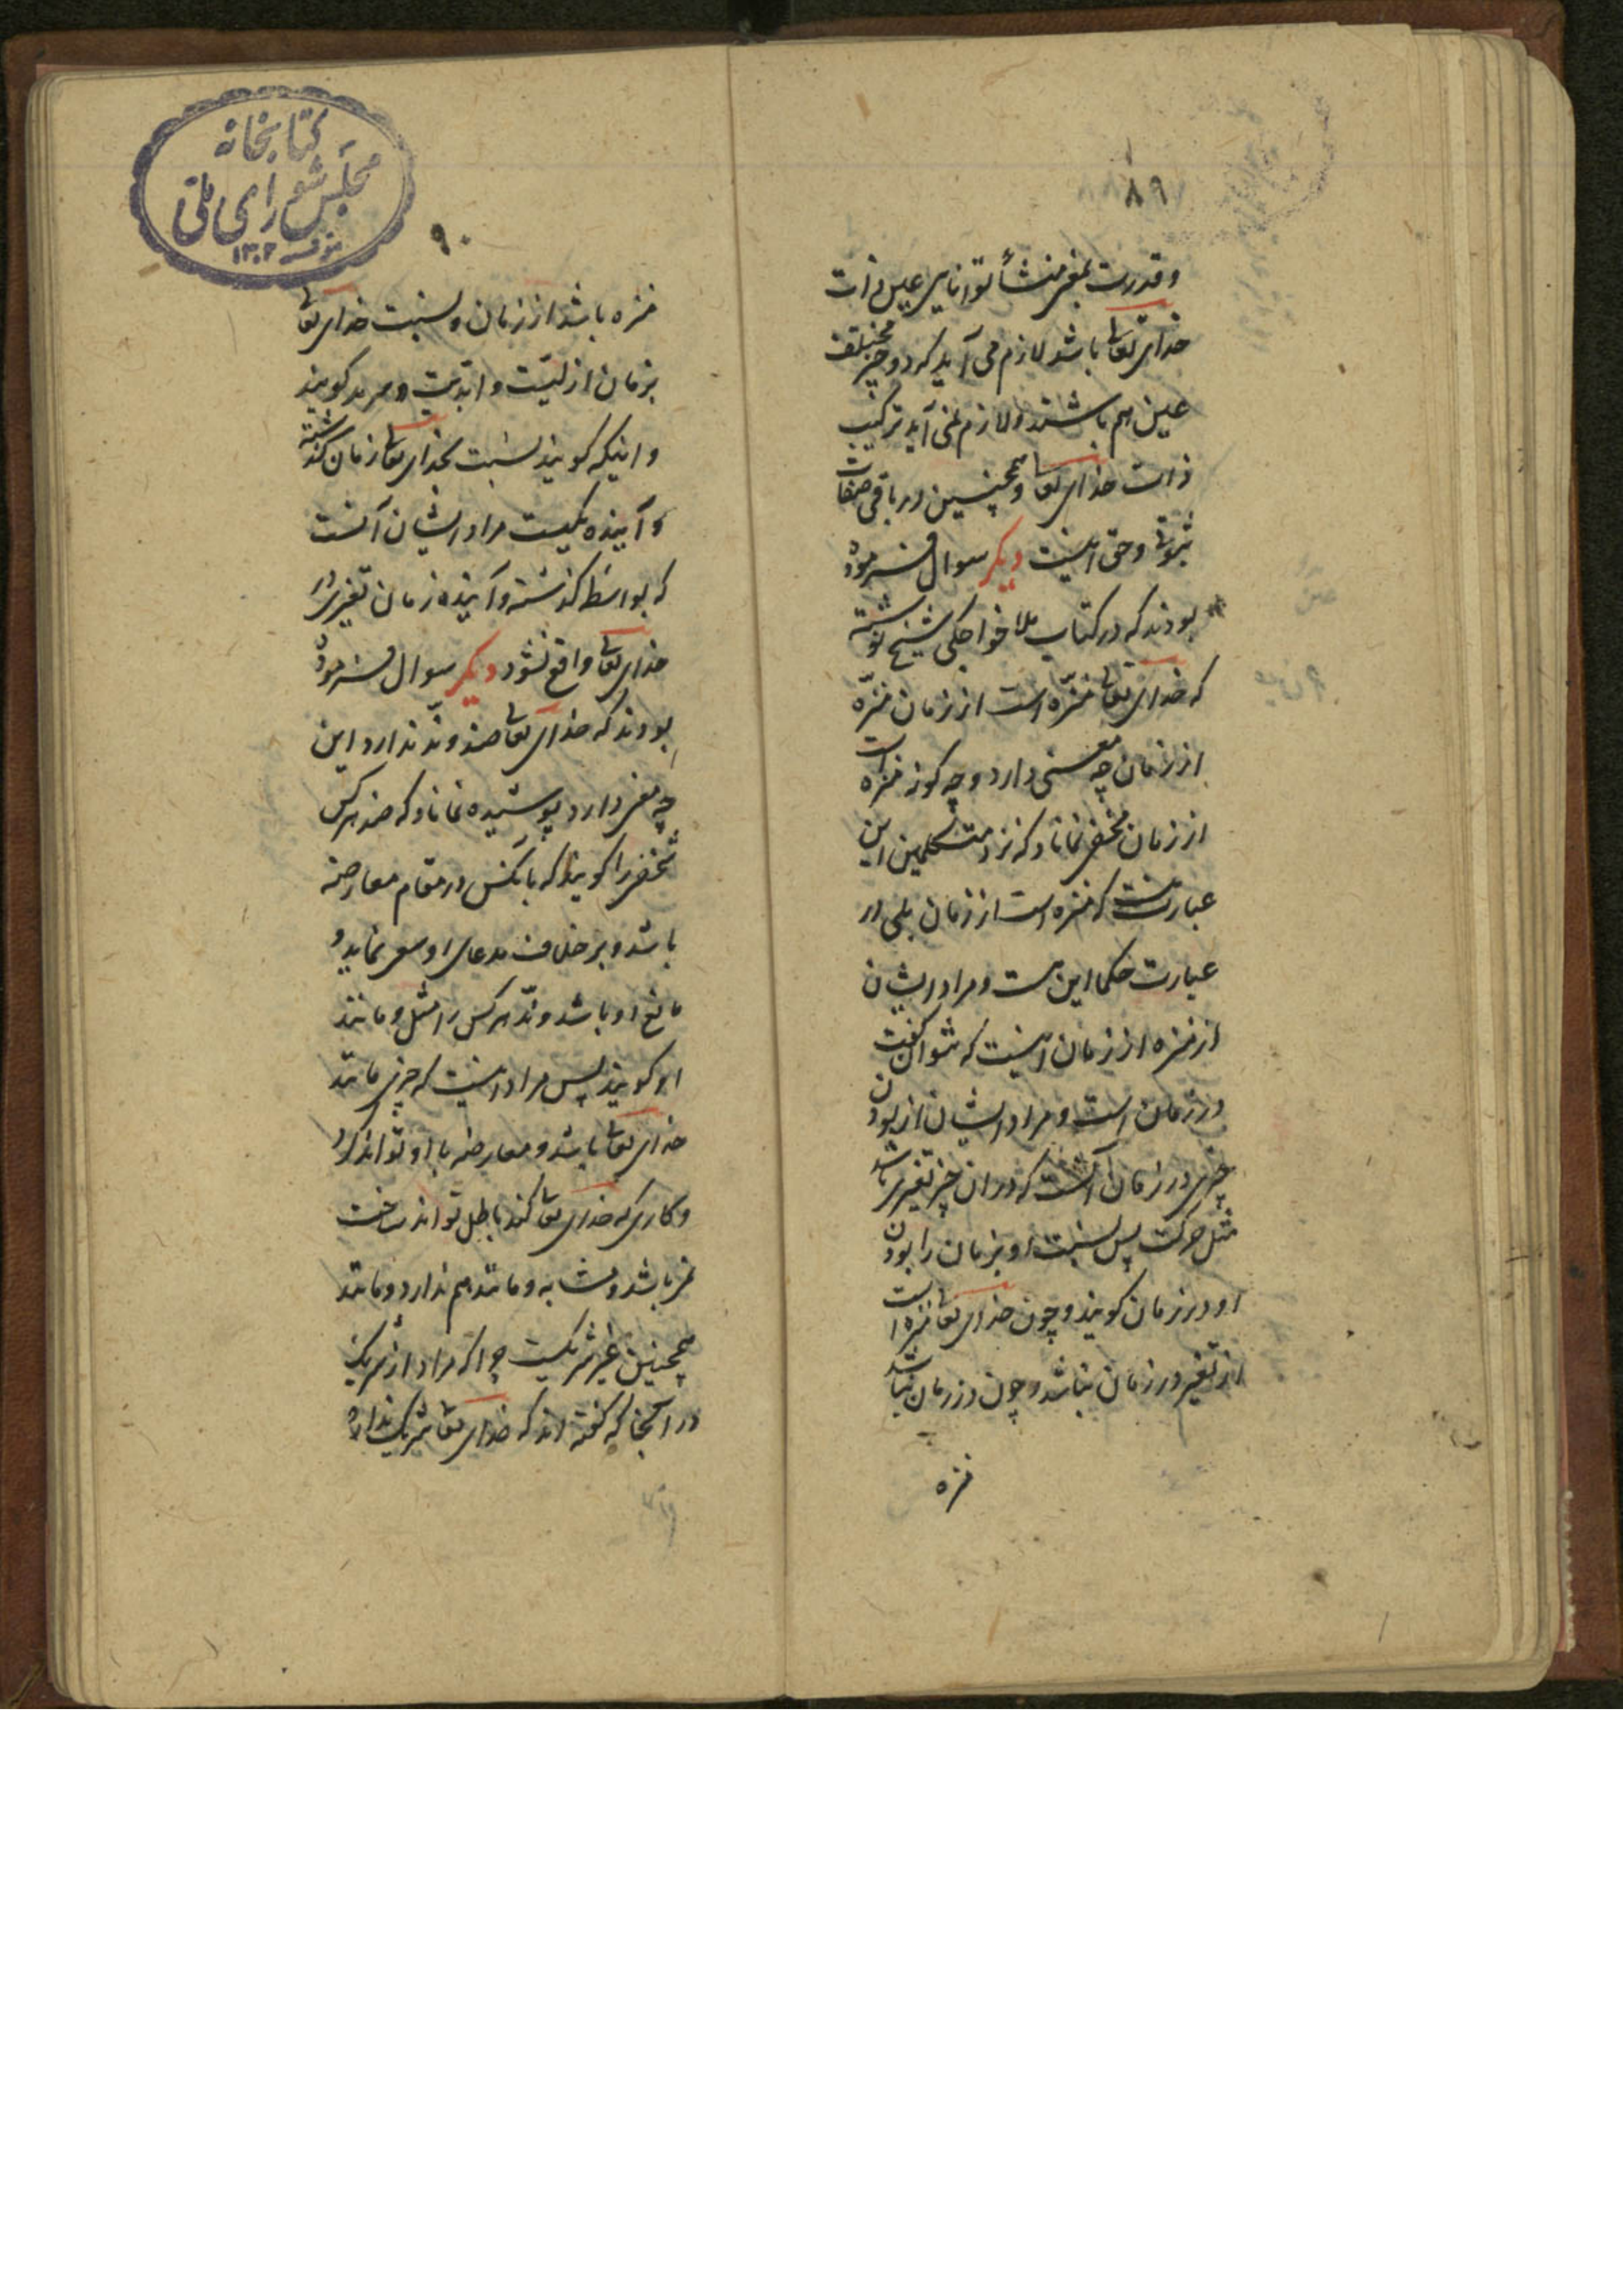 ۸۹
و قدرت بمعنی منشأ توانایی عین ذات
خدای تعالی باشد لازم می آید که دو چیز مختلف
عین هم باشند و لازم نمی آید ترکیب
ذات خدای تعا و همچنین در باقی صفات
ثبوتی و حق اینست دیگر سوال فرموده
بودند که در کتاب ملا خواجکی شیخ نوشته
که خدای تعالی منزّه است از زمان منزّه
از زمان چه معنی دارد و چه کونه منزه است
از زمان مخفی نماناد که نزد متکلمین این
عبارت نیست که منزه است از زمان بلی در
عبارت حکما این هست و مراد ایشان
از منزه از زمان اینست که نتوان کفت
در زمان است و مراد ایشان از بودن
چیزی در زمان آنست که در ان چیز تغیری باشد
مثل حرکت پس نسبت او بزمان را بودن
او در زمان کویند و چون خدای تعالی منزه است
از تغیر در زمان نباشد و چون در زمان نباشد
منزه
۹۰
منزه باشد از زمان و نسبت خدای تعالی
بزمان ازلیّت و ابدیّت و سرمد کویند
و اینکه کویند نسبت بخدای تعالی زمان کذشته
و آینده یکیست مراد ایشان آنست
که بواسطه کذشته و آینده زمان تغیری در
خدای تعالی واقع نشود دیگر سوال فرموده
بودند که خدای تعالی ضد و ندّ ندارد این
چه معنی دارد پوشیده نماناد که ضد هرکس
شخصی را کویند که با آنکس در مقام معارضه
باشد و بر خلاف مدعای او سعی نماید و
مانع او باشد و ندّ هرکس را مثل و مانند
او کویند پس مراد اینست که چیزی مانند
خدای تعالی باشد و معارضه با او تواند کرد
و کاری که خدای تعا کند باطل تواند ساخت
نمی باشد و مشابه و مانند هم ندارد و مانند
همچنین غیر شریکست چرا که مراد از شریک
در آنجا که کفته اند که خدای تعالی شریک ندارد
کتابخانه
مجلس شورای ملی
۱۳۰۲